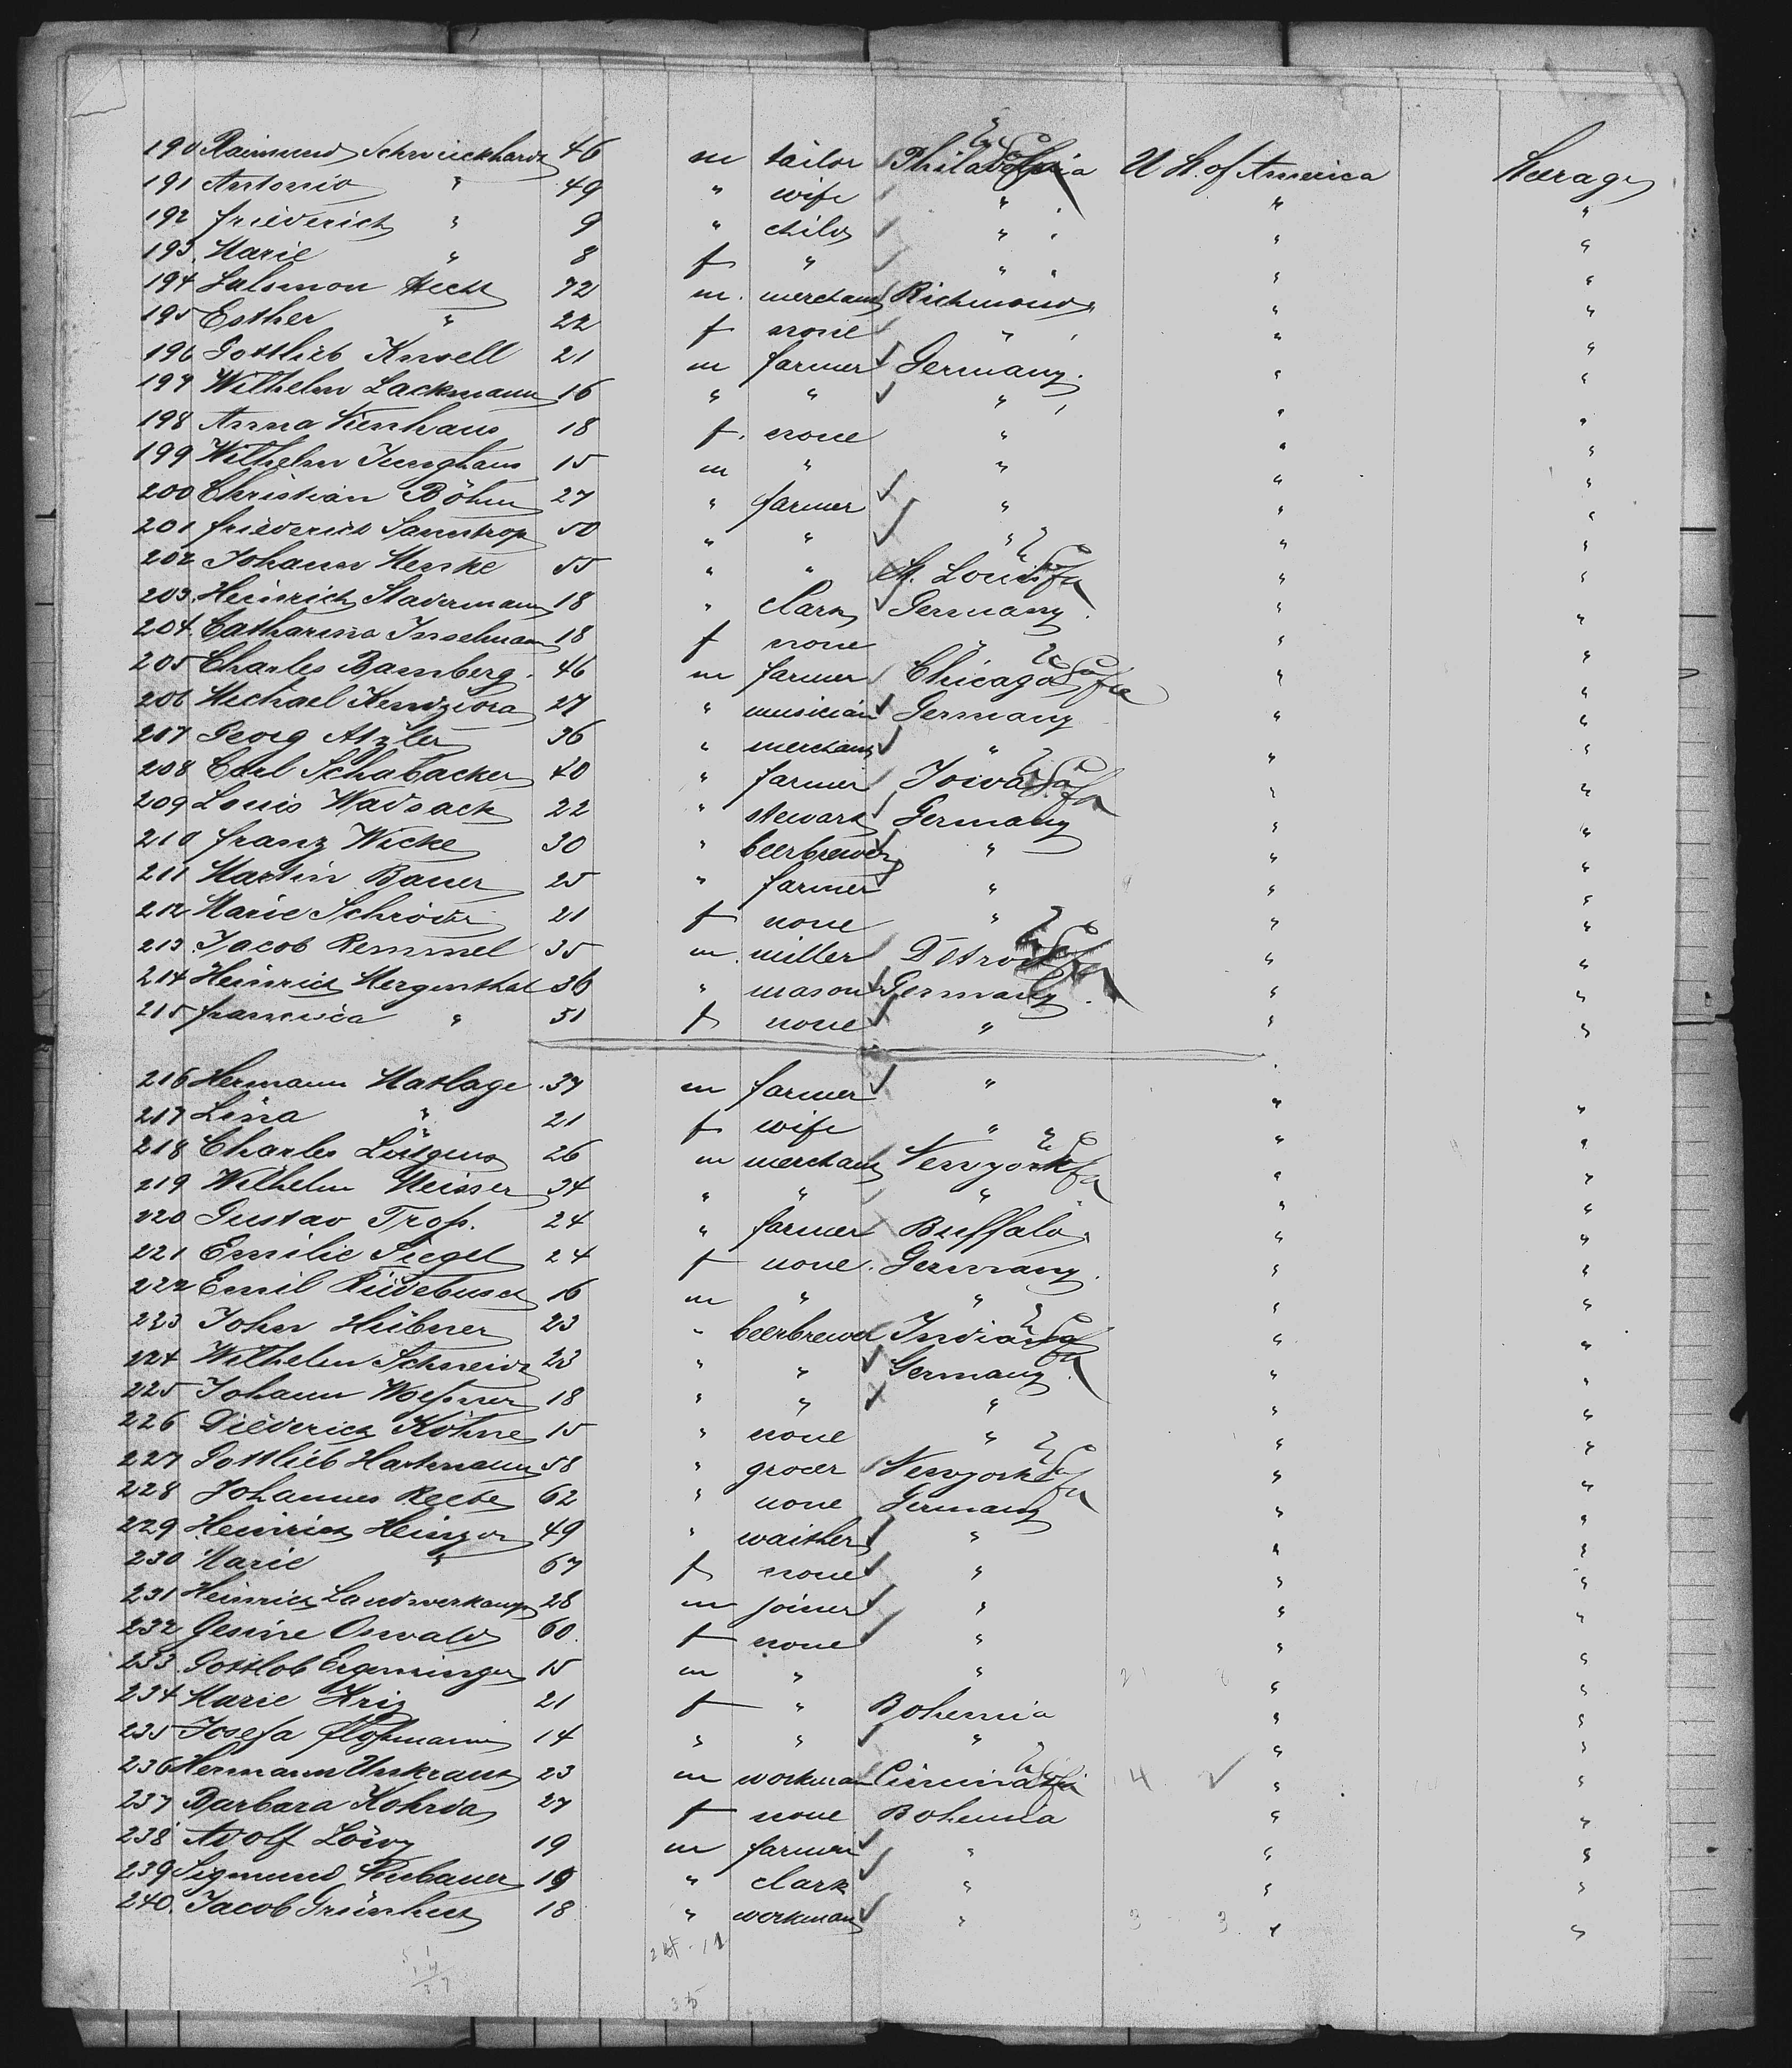 190 Raimund Schwuckhardt 46 m tailor Philadelphia U St. of America Steerage
191 Antonio " 49 " wife " " "
192 Friederich " 9 " child " " "
193. Marie " 8 f " " " "
194 Salomon Hecht 72 m. merchant Richmond " "
195 Esther " 22 f none " " "
196 Gottlieb Knoell 21 m farmer Germany. " "
197 Wilhelm Lackmann 16 " " " " "
198 Anna Kienhaus 18 f. none " " "
199 Wilhelm Junghaus 15 m " " " "
200 Christian Böhm 27 " farmer " " "
201 Friederich Samtrop 50 " " " " "
202 Johann Henke 55 " " St. Louis " "
203. Heinrich Stadermann 18 " Clark Germany " "
204. Catharina Inselmann 18 f none " " "
205 Charles Bamberg. 46 m farmer Chicago " "
206 Michael Kendziora 27 " musician Germany " "
207 Georg Atzler 36 " merchant " " "
208 Carl Schabacker 40 " farmer Iowa " "
209 Louis Wadsack 22 " stewart Germany " "
210 Franz Wicke 30 " beerbrewer " " "
211 Martin Bauer 25 " farmer " " "
212 Marie Schröder 21 f none " " "
213. Jacob Remmel 35 m. miller Detroit " "
214 Heinrich Mergenthal 36 " mason Germany. " "
215 51 f none " " "
216 Hermann Matlage 37 m farmer " " "
217 Lina " 21 f wife " " "
218 Charles 26 m merchant Newyork " "
219 Wilhelm Meisser 34 " " " " "
220 Gustav Trost. 24 " farmer Buffalo " "
221 Emilie Siegel 24 f none. Germany. " "
222 Emil Rüdebusch 16 m " " " "
223 John Hübner 23 " beerbrewer Indiana " "
224 Wilhelm Schneider 23 " " Germany. " "
225 Johann 18 " " " " "
226 Diederich Köhne 15 " none " " "
227 Gottlieb Hartmann 58 " grocer Newyork " "
228 Johannes 62 " none Germany " "
229 Heinrich 49 " waither " " "
230 Marie " 67 f none " " "
231 Heinrich Landwerkamp 28 m joiner " " "
232 Gesine Oswald 60. f none " " "
233. Gottlob 15 m " " " "
234 Marie Kriz 21 f " Bohemia " "
235 Josefa 14 " " " " "
236 Hermann Unkraut 23 m workman Cincinnati 4 " "
237 Barbara Kohrda 27 f none Bohemia " "
238 Adolf Löwy 19 m farmer " " "
239 Sigmund Neubauer 19 " Clark " " "
240. Jacob Grünhut 18 " workman " 3 3 " "